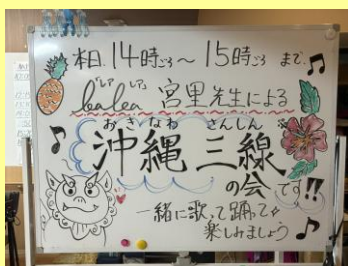 本日 14時ごろ～15時ごろまで♪
レア レア
lealea 宮里先生による
おきなわ さんしん
沖縄三線
の会です!!
一緒に歌って踊って
楽しみましょう♪